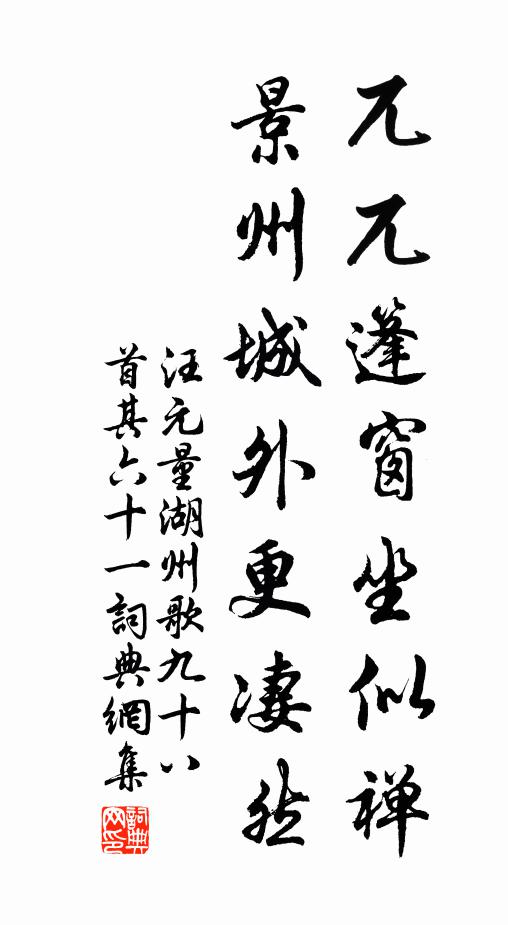 兀兀篷窗坐似禅
景州城外更凄然
汪元量湖州歌九十八
首其六十一詞典網集
詞典网印